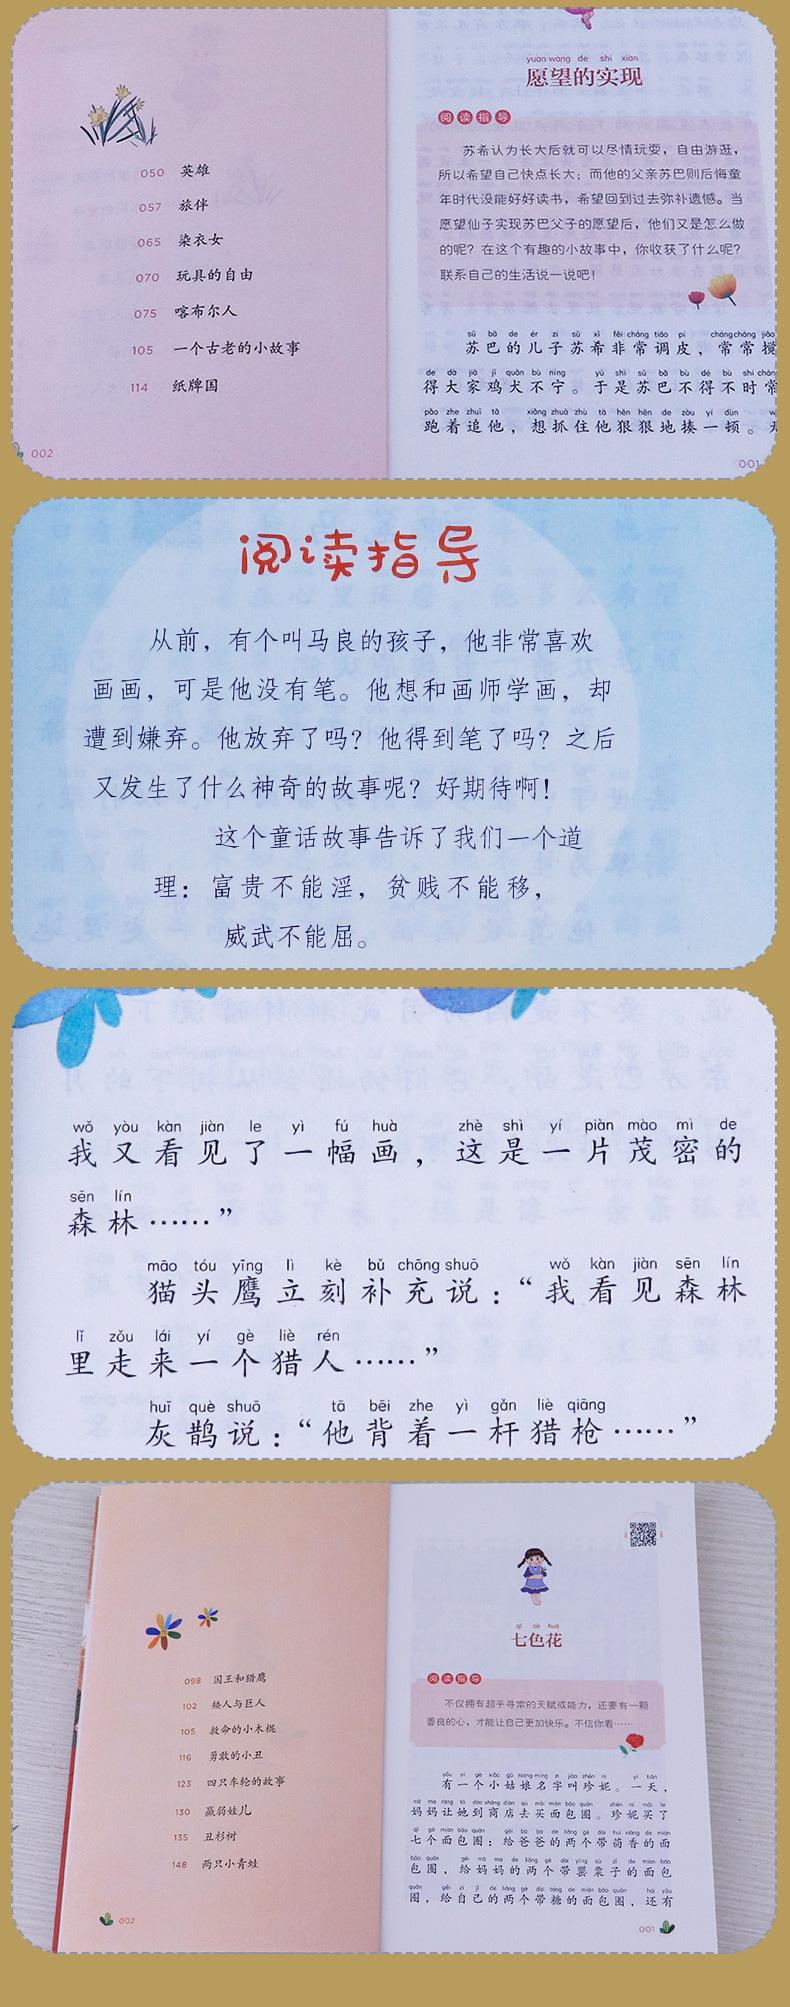 050 英雄
057 旅伴
065 染衣女
070 玩具的自由
075 喀布尔人
105 一个古老的小故事
114 纸牌国
002
yuàn wàng de shí xiàn
愿望的实现
阅读指导
苏希认为长大后就可以尽情玩耍，自由游逛，
所以希望自己快点长大；而他的父亲苏巴则后悔童
年时代没能好好读书，希望回到过去弥补遗憾。当
愿望仙子实现苏巴父子的愿望后，他们又是怎么做
的呢？在这个有趣的小故事中，你收获了什么呢？
联系自己的生活说一说吧！
sū bā de ér zi sū xī fēi cháng tiáo pí cháng cháng jiǎo
苏巴的儿子苏希非常调皮，常常搅
de dà jiā jī quǎn bù níng yú shì sū bā bù dé bù shí cháng
得大家鸡犬不宁。于是苏巴不得不时常
pǎo zhe zhuī tā xiǎng zhuā zhù tā hěn hěn de zòu yí dùn
跑着追他，想抓住他狠狠地揍一顿。
001
阅读指导
从前，有个叫马良的孩子，他非常喜欢
画画，可是他没有笔。他想和画师学画，却
遭到嫌弃。他放弃了吗？他得到笔了吗？之后
又发生了什么神奇的故事呢？好期待啊！
这个童话故事告诉了我们一个道
理：富贵不能淫，贫贱不能移，
威武不能屈。
wǒ yòu kàn jiàn le yì fú huà zhè shì yí piàn mào mì de
我又看见了一幅画，这是一片茂密的
sēn lín
森林……”
māo tóu yīng lì kè bǔ chōng shuō wǒ kàn jiàn sēn lín
猫头鹰立刻补充说：“我看见森林
lǐ zǒu lái yí gè liè rén
里走来一个猎人……”
huī què shuō tā bēi zhe yì gǎn liè qiāng
灰鹊说：“他背着一杆猎枪……”
098 国王和猎鹰
102 矮人与巨人
105 救命的小木棍
116 勇敢的小丑
123 四只车轮的故事
130 羸弱娃儿
135 丑杉树
148 两只小青蛙
002
qī sè huā
七色花
阅读指导
不仅拥有超乎寻常的天赋或能力，还要有一颗
善良的心，才能让自己更加快乐。不信你看……
yǒu yí gè xiǎo gū niang míng zi jiào zhēn nī yì tiān
有一个小姑娘名字叫珍妮。一天，
mā ma ràng tā dào shāng diàn qù mǎi miàn bāo quān zhēn nī mǎi le
妈妈让她到商店去买面包圈。珍妮买了
qī gè miàn bāo quān gěi bà ba de liǎng gè dài huí xiāng de miàn
七个面包圈：给爸爸的两个带茴香的面
bāo quān gěi mā ma de liǎng gè dài yīng sù zǐ de miàn bāo
包圈，给妈妈的两个带罂粟子的面包
quān gěi zì jǐ de liǎng gè dài táng de miàn bāo quān hái yǒu
圈，给自己的两个带糖的面包圈，还有
001